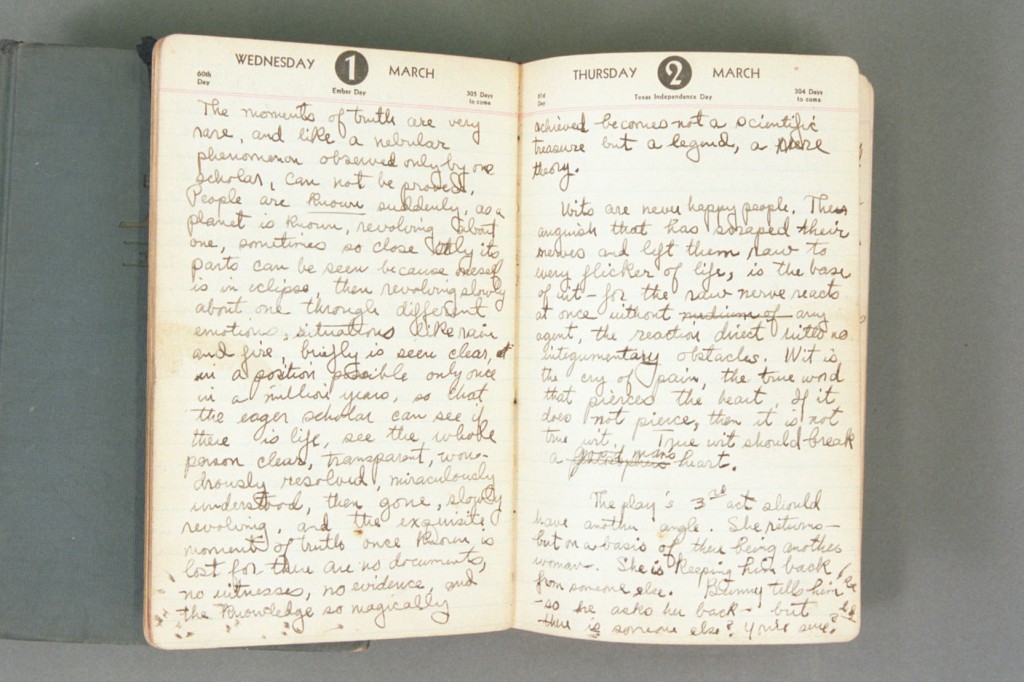 WEDNESDAY 1 MARCH
60th Day
Ember Day
305 Days to come
The moments of truth are very
rare, and like a nebular
phenomenon observed only by one
scholar, can not be proved.
People are known suddenly, as a
planet is known, revolving about
one, sometimes so close only its
parts can be seen because oneself
is in eclipse, then revolving slowly
about one through different
emotions, situations like rain
and fire, briefly is seen clear,
in a position possible only once
in a million years, so that
the eager scholar can see if
there is life, see the whole
person clear, transparent, won-
drously resolved, miraculously
understood, then gone, slowly
revolving, and the exquisite
moment of truth once known is
lost for there are no documents,
no witnesses, no evidence, and
the knowledge so magically
THURSDAY 2 MARCH
61st Day
Texas Independence Day
304 Days to come
achieved becomes not a scientific
treasure but a legend, a mere
theory.
Wits are never happy people. The
anguish that has scraped their
nerves and left them raw to
every flicker of life, is the base
of wit – for the raw nerve reacts
at once without medium of any
agent, the reaction direct with no
integumentary obstacles. Wit is
the cry of pain, the true word
that pierces the heart. If it
does not pierce, then it is not
true wit. True wit should break
a good man's heart.
The play's 3rd act should
have another angle. She returns –
but on a basis of there being another
woman. She is keeping him back
from someone else. Bunny tells him
– so he asks her back – but
there is someone else? You're sure?